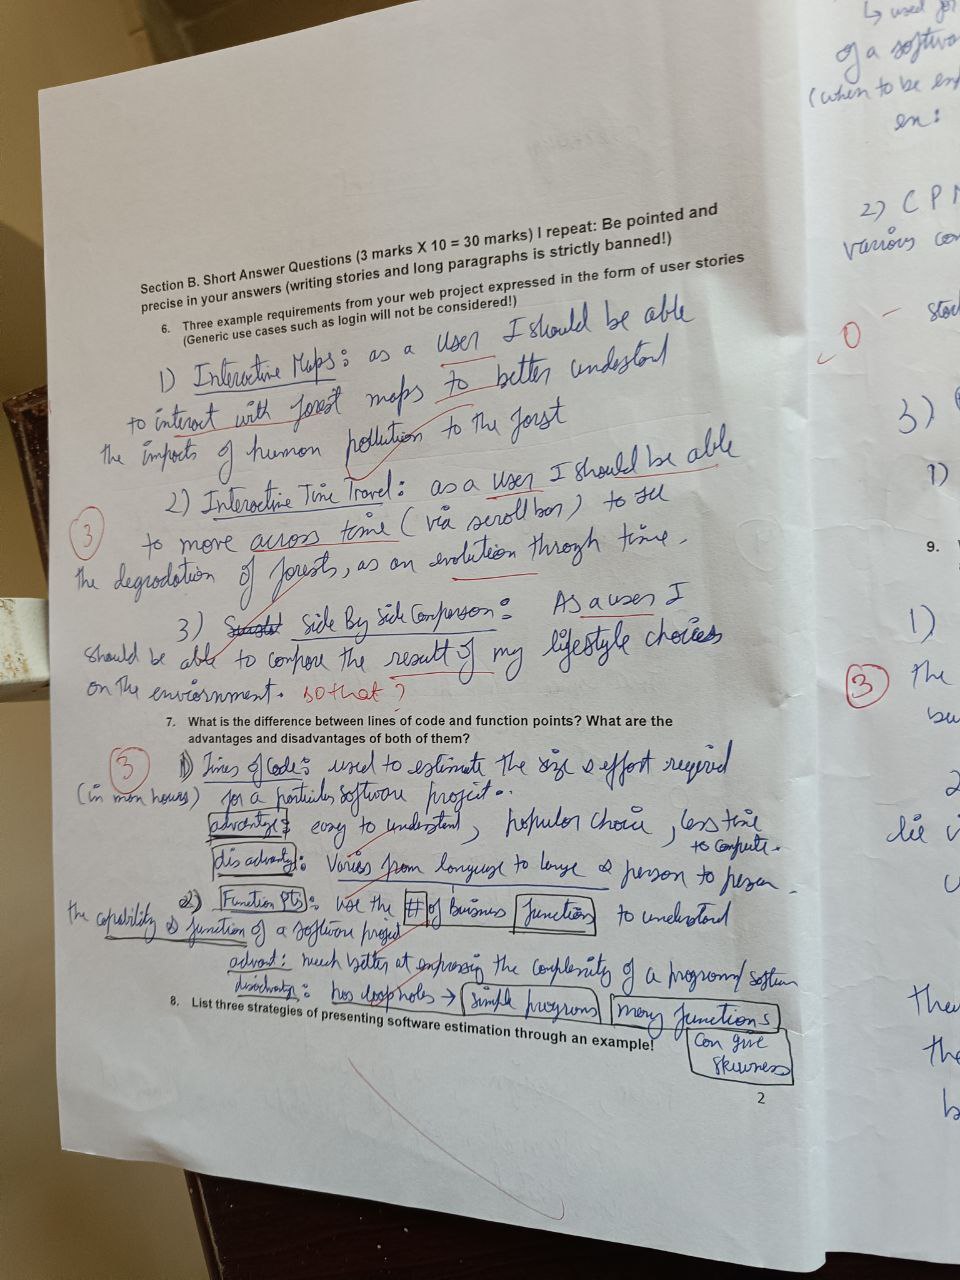 Section B. Short Answer Questions (3 marks X 10 = 30 marks) I repeat: Be pointed and
precise in your answers (writing stories and long paragraphs is strictly banned!)
6. Three example requirements from your web project expressed in the form of user stories
(Generic use cases such as login will not be considered!)
1) Interactive Maps: as a user I should be able
to interact with forest maps to better understand
the impacts of human pollution to the forst
2) Interactive Time Travel: as a user I should be able
3
to move across time (via scroll bar) to see
the degradation of forests, as an evolution through time.
3) Side By Side Comparison: As a user I
should be able to compare the result of my lifestyle choices
on the enviornment. so that?
7. What is the difference between lines of code and function points? What are the
advantages and disadvantages of both of them?
3
1) Lines of Code: used to estimate the size & effort required
(in man hours) for a particular software project..
advantage: easy to understand, popular choice, less time
to compute.
disadvantg: Varies from language to lange & person to person.
2) Function Pts: use the # of Buisness functions to understand
the capability & function of a software project
advant: much better at expressing the complexity of a program/software
disadvantg: has loopholes → simple programs many functions
can give
skewness
8. List three strategies of presenting software estimation through an example!
2
↳ used for
of a softwa
(when to be
en:
2) CPM
various con
0
stoc
3)
1)
9.
1)
3
the
bu
2
lie
the
the
b